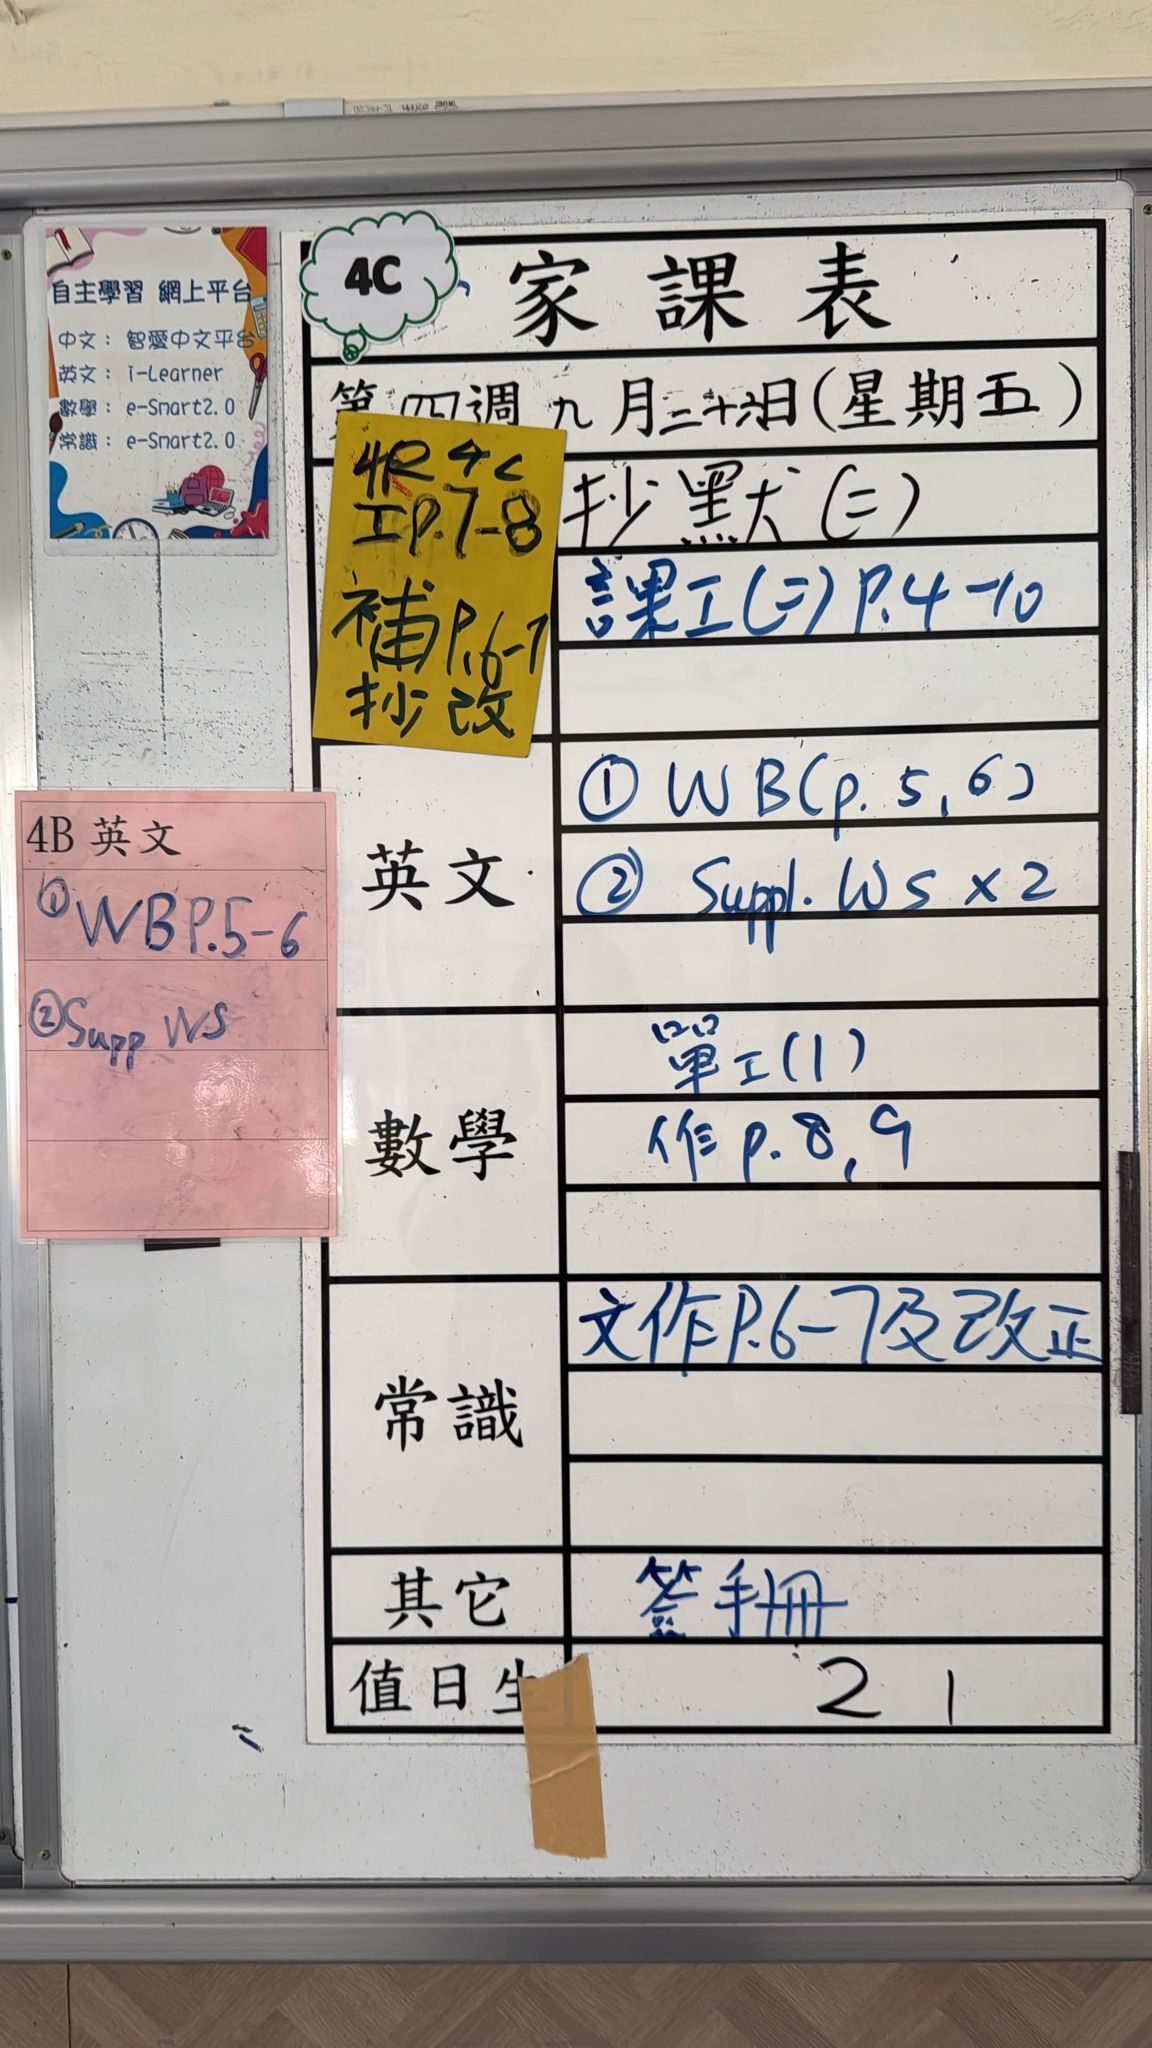 自主學習 網上平台
中文： 智愛中文平台
英文： i-Learner
數學： e-Smart2.0
常識： e-Smart2.0
4C
家課表
第四週 九月二十六日(星期五)
4R 4C
工P.7-8
補P.6-7
抄改
抄默(二)
課工(二) P.4-10
英文
① WB(p. 5, 6)
② Suppl. WS x 2
4B 英文
① WB P.5-6
② Supp WS
數學
單工(1)
作 p. 8, 9
常識
文作P.6-7及改正
其它
簽手冊
值日生
2 1